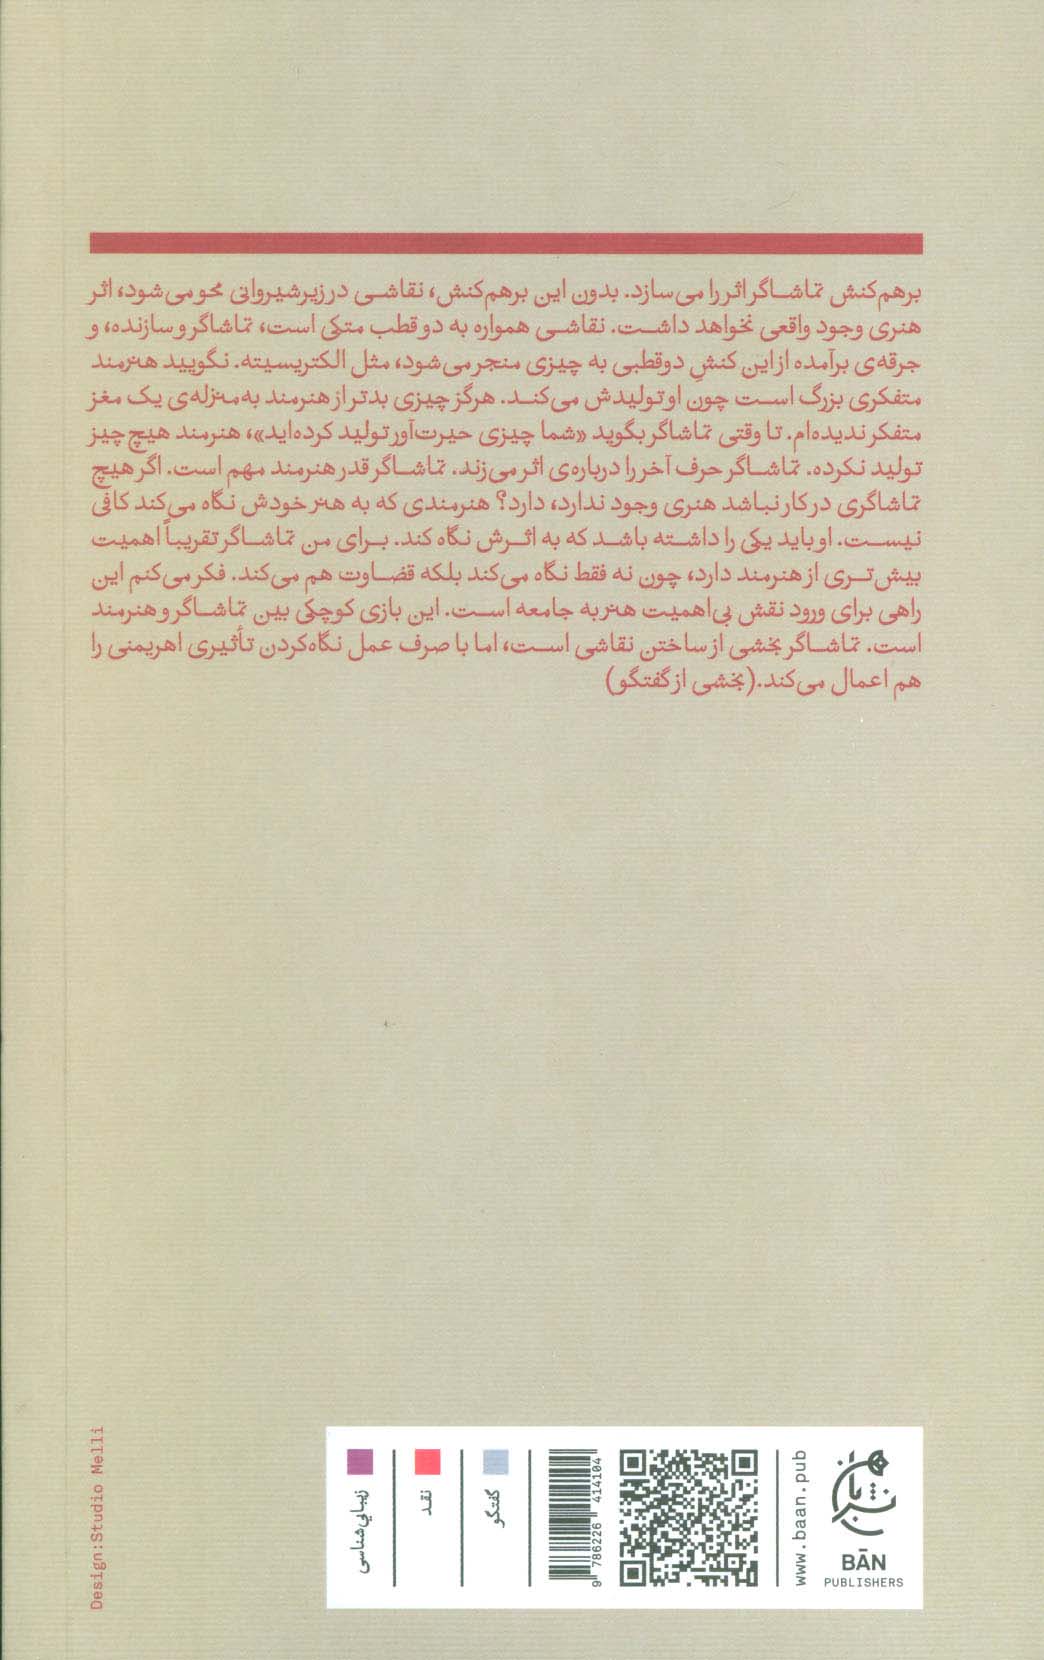 برهم‌کنش تماشاگر اثر را می‌سازد. بدون این برهم‌کنش، نقاشی در زیرشیروانی محو می‌شود، اثر
هنری وجود واقعی نخواهد داشت. نقاشی همواره به دو قطب متکی است، تماشاگر و سازنده، و
جرقه‌ی برآمده از این کنشِ دوقطبی به چیزی منجر می‌شود، مثل الکتریسیته. نگویید هنرمند
متفکری بزرگ است چون او تولیدش می‌کند. هرگز چیزی بدتر از هنرمند به‌منزله‌ی یک مغز
متفکر ندیده‌ام. تا وقتی تماشاگر بگوید «شما چیزی حیرت‌آور تولید کرده‌اید»، هنرمند هیچ چیز
تولید نکرده. تماشاگر حرف آخر را درباره‌ی اثر می‌زند. تماشاگر قدر هنرمند مهم است. اگر هیچ
تماشاگری در کار نباشد هنری وجود ندارد، دارد؟ هنرمندی که به هنر خودش نگاه می‌کند کافی
نیست. او باید یکی را داشته باشد که به اثرش نگاه کند. برای من تماشاگر تقریباً اهمیت
بیش‌تری از هنرمند دارد، چون نه فقط نگاه می‌کند بلکه قضاوت هم می‌کند. فکر می‌کنم این
راهی برای ورود نقش بی‌اهمیت هنر به جامعه است. این بازی کوچکی بین تماشاگر و هنرمند
است. تماشاگر بخشی از ساختن نقاشی است، اما با صرف عمل نگاه‌کردن تأثیری اهریمنی را
هم اعمال می‌کند.(بخشی از گفتگو)
نشر بان
BĀN
PUBLISHERS
www.baan.pub
9 786226 414104
گفتگو
نقد
زیبایی‌شناسی
Design:Studio Melli